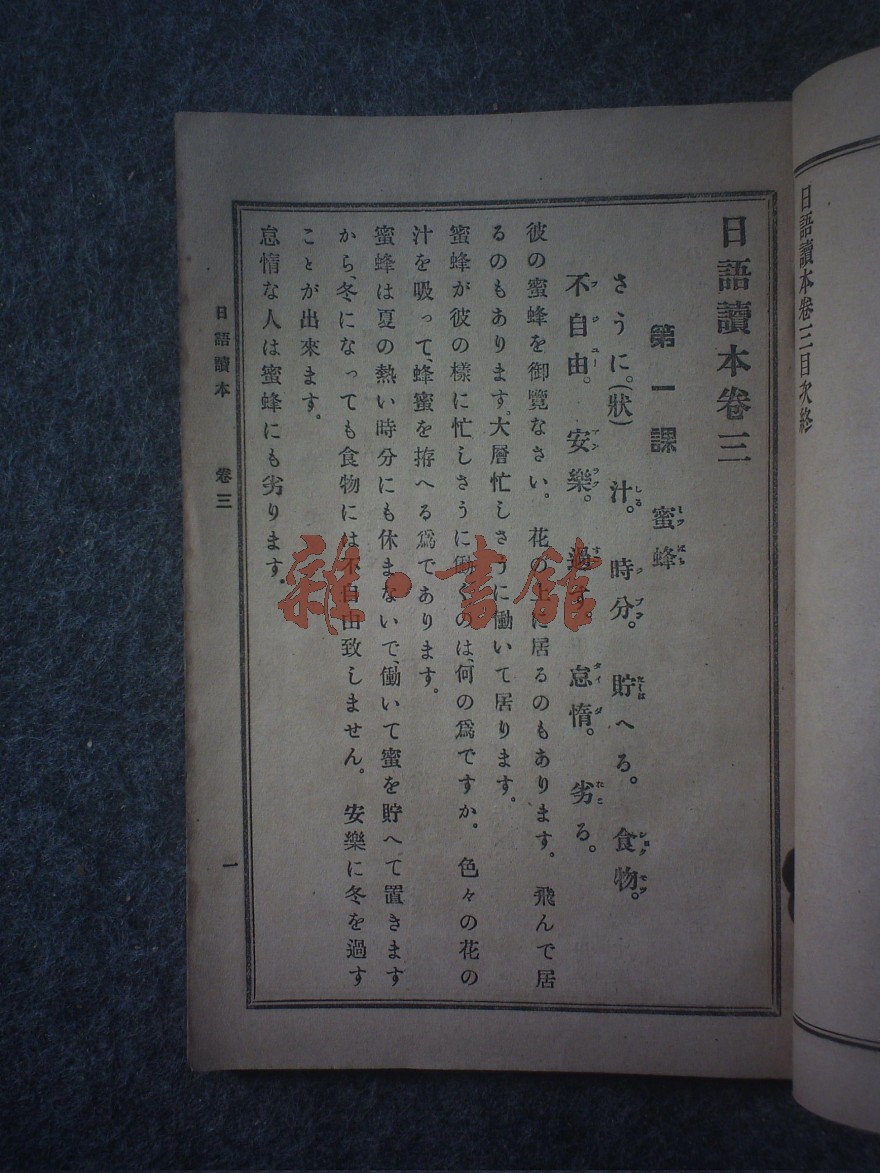 日語讀本卷三目次終
日語讀本卷三
第一課 蜜蜂
さうに。(狀) 汁。 時分。 貯へる。 食物。
不自由。 安樂。 過す。 怠惰。 劣る。
彼の蜜蜂を御覽なさい。 花の上に居るのもあります。 飛んで居
るのもあります。大層忙しさうに働いて居ります。
蜜蜂が彼の樣に忙しさうに働くのは、何の爲ですか。 色々の花の
汁を吸って、蜂蜜を拵へる爲であります。
蜜蜂は夏の熱い時分にも休まないで、働いて蜜を貯へて置きます
から、冬になっても食物には不自由致しません。 安樂に冬を過す
ことが出來ます。
怠惰な人は蜜蜂にも劣ります。
日語讀本 卷三 一
雜·書館